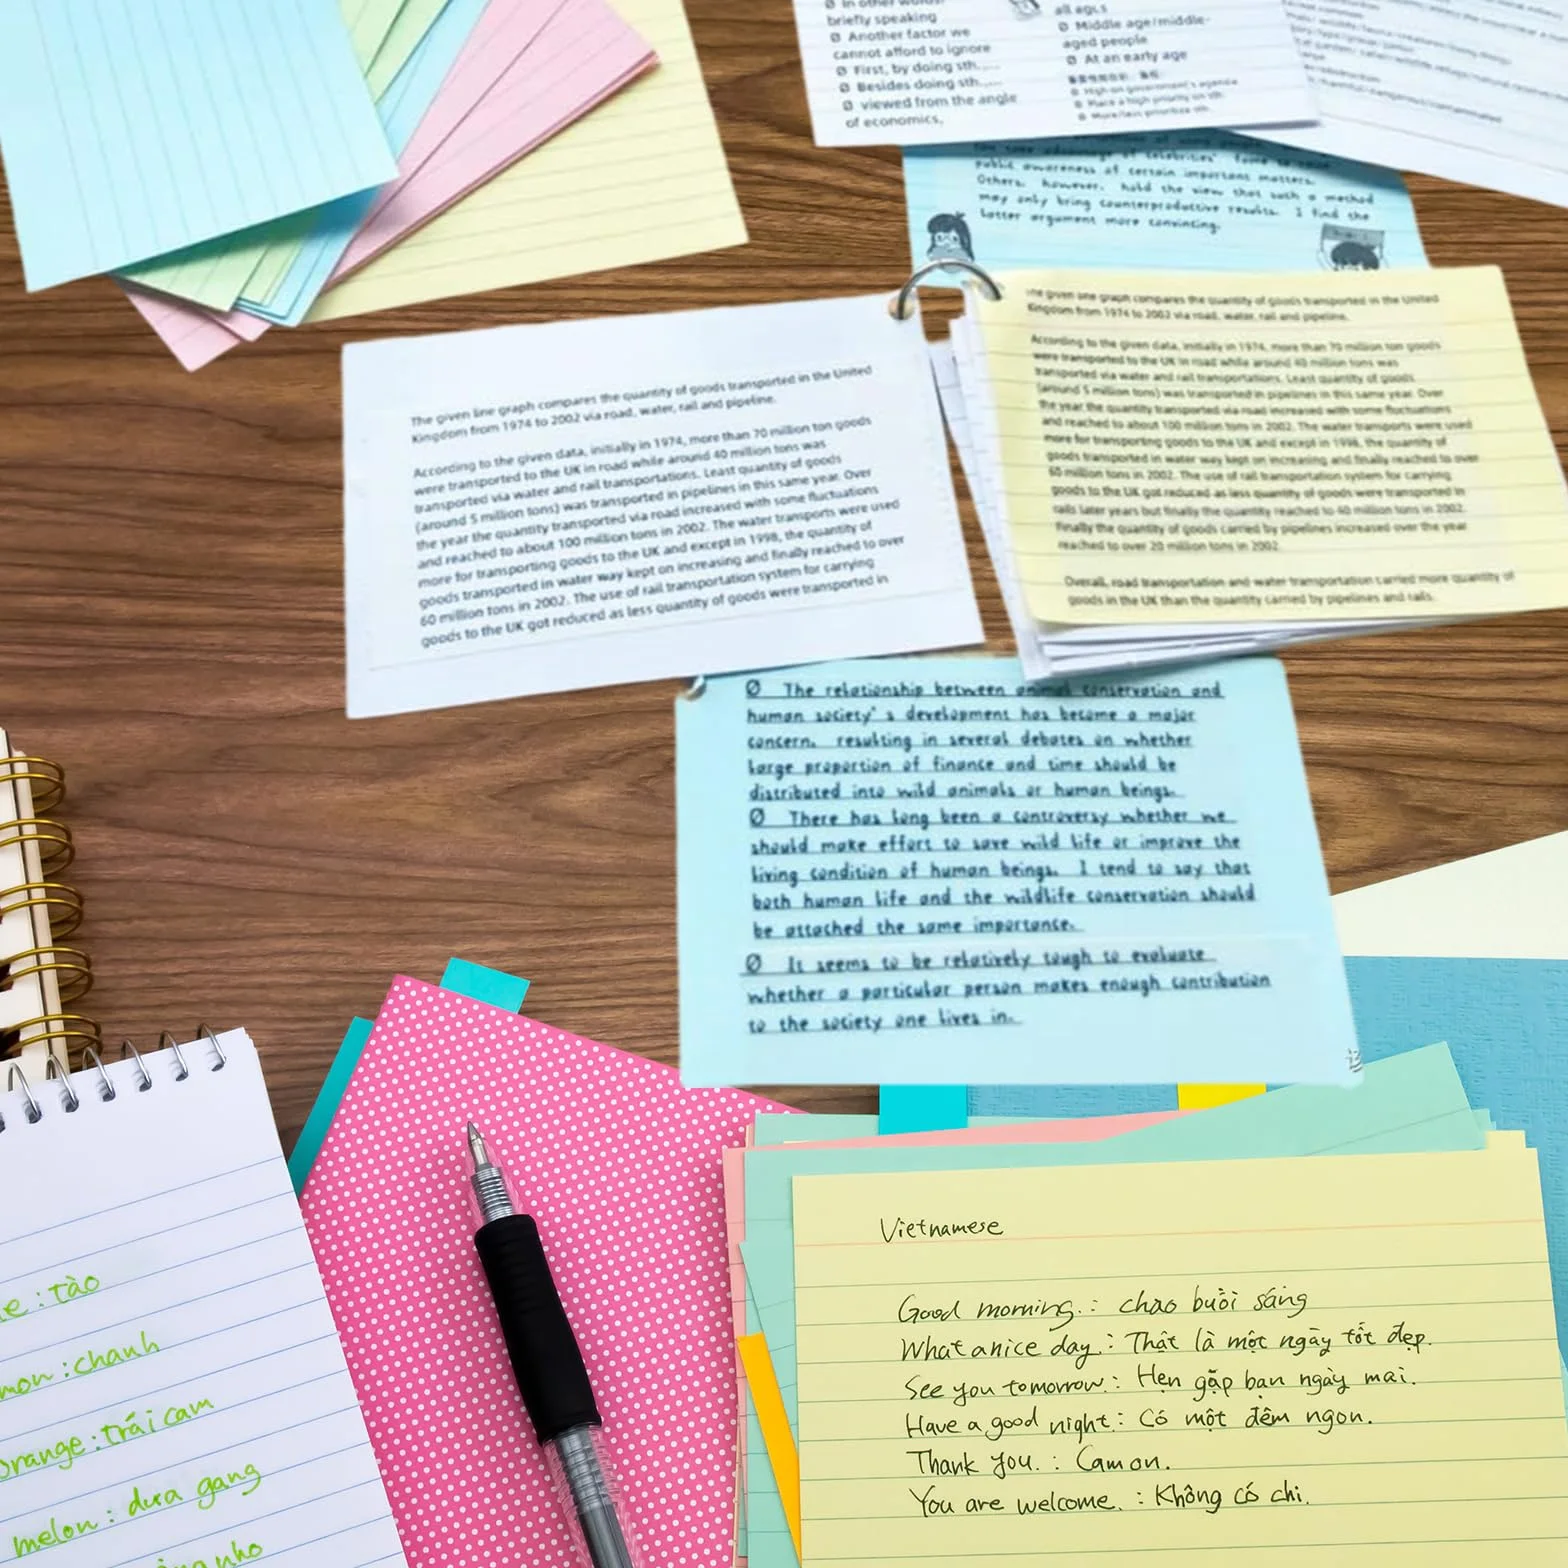 briefly speaking
Ø Another factor we
cannot afford to ignore
Ø First, by doing sth.....
Ø Besides doing sth.....
Ø viewed from the angle
of economics.
Ø Middle age/middle-
aged people
Ø At an early age
public awareness of certain important matters.
Others, however, hold the view that such a method
may only bring counterproductive results. I find the
latter argument more convincing.
The given line graph compares the quantity of goods transported in the United
Kingdom from 1974 to 2002 via road, water, rail and pipeline.
According to the given data, initially in 1974, more than 70 million ton goods
were transported to the UK in road while around 40 million tons was
transported via water and rail transportations. Least quantity of goods
(around 5 million tons) was transported in pipelines in this same year. Over
the year the quantity transported via road increased with some fluctuations
and reached to about 100 million tons in 2002. The water transports were used
more for transporting goods to the UK and except in 1998, the quantity of
goods transported in water way kept on increasing and finally reached to over
60 million tons in 2002. The use of rail transportation system for carrying
goods to the UK got reduced as less quantity of goods were transported in
The given line graph compares the quantity of goods transported in the United
Kingdom from 1974 to 2002 via road, water, rail and pipeline.
According to the given data, initially in 1974, more than 70 million ton goods
were transported to the UK in road while around 40 million tons was
transported via water and rail transportations. Least quantity of goods
(around 5 million tons) was transported in pipelines in this same year. Over
the year the quantity transported via road increased with some fluctuations
and reached to about 100 million tons in 2002. The water transports were used
more for transporting goods to the UK and except in 1998, the quantity of
goods transported in water way kept on increasing and finally reached to over
60 million tons in 2002. The use of rail transportation system for carrying
goods to the UK got reduced as less quantity of goods were transported in
rails later years but finally the quantity reached to 40 million tons in 2002.
Finally the quantity of goods carried by pipelines increased over the year
reached to over 20 million tons in 2002
Overall, road transportation and water transportation carried more quantity of
goods in the UK than the quantity carried by pipelines and rails.
Ø The relationship between animal conservation and
human society's development has become a major
concern, resulting in several debates on whether
large proportion of finance and time should be
distributed into wild animals or human beings.
Ø There has long been a controversy whether we
should make effort to save wild life or improve the
living condition of human beings. I tend to say that
both human life and the wildlife conservation should
be attached the same importance.
Ø It seems to be relatively tough to evaluate
whether a particular person makes enough contribution
to the society one lives in.
: tào
mon : chanh
orange : trái cam
melon : dưa gang
nho
Vietnamese
Good morning. : chào buổi sáng
What a nice day. : Thật là một ngày tốt đẹp.
See you tomorrow. : Hẹn gặp bạn ngày mai.
Have a good night. : Có một đêm ngon.
Thank you. : Cam on.
You are welcome. : Không có chi.